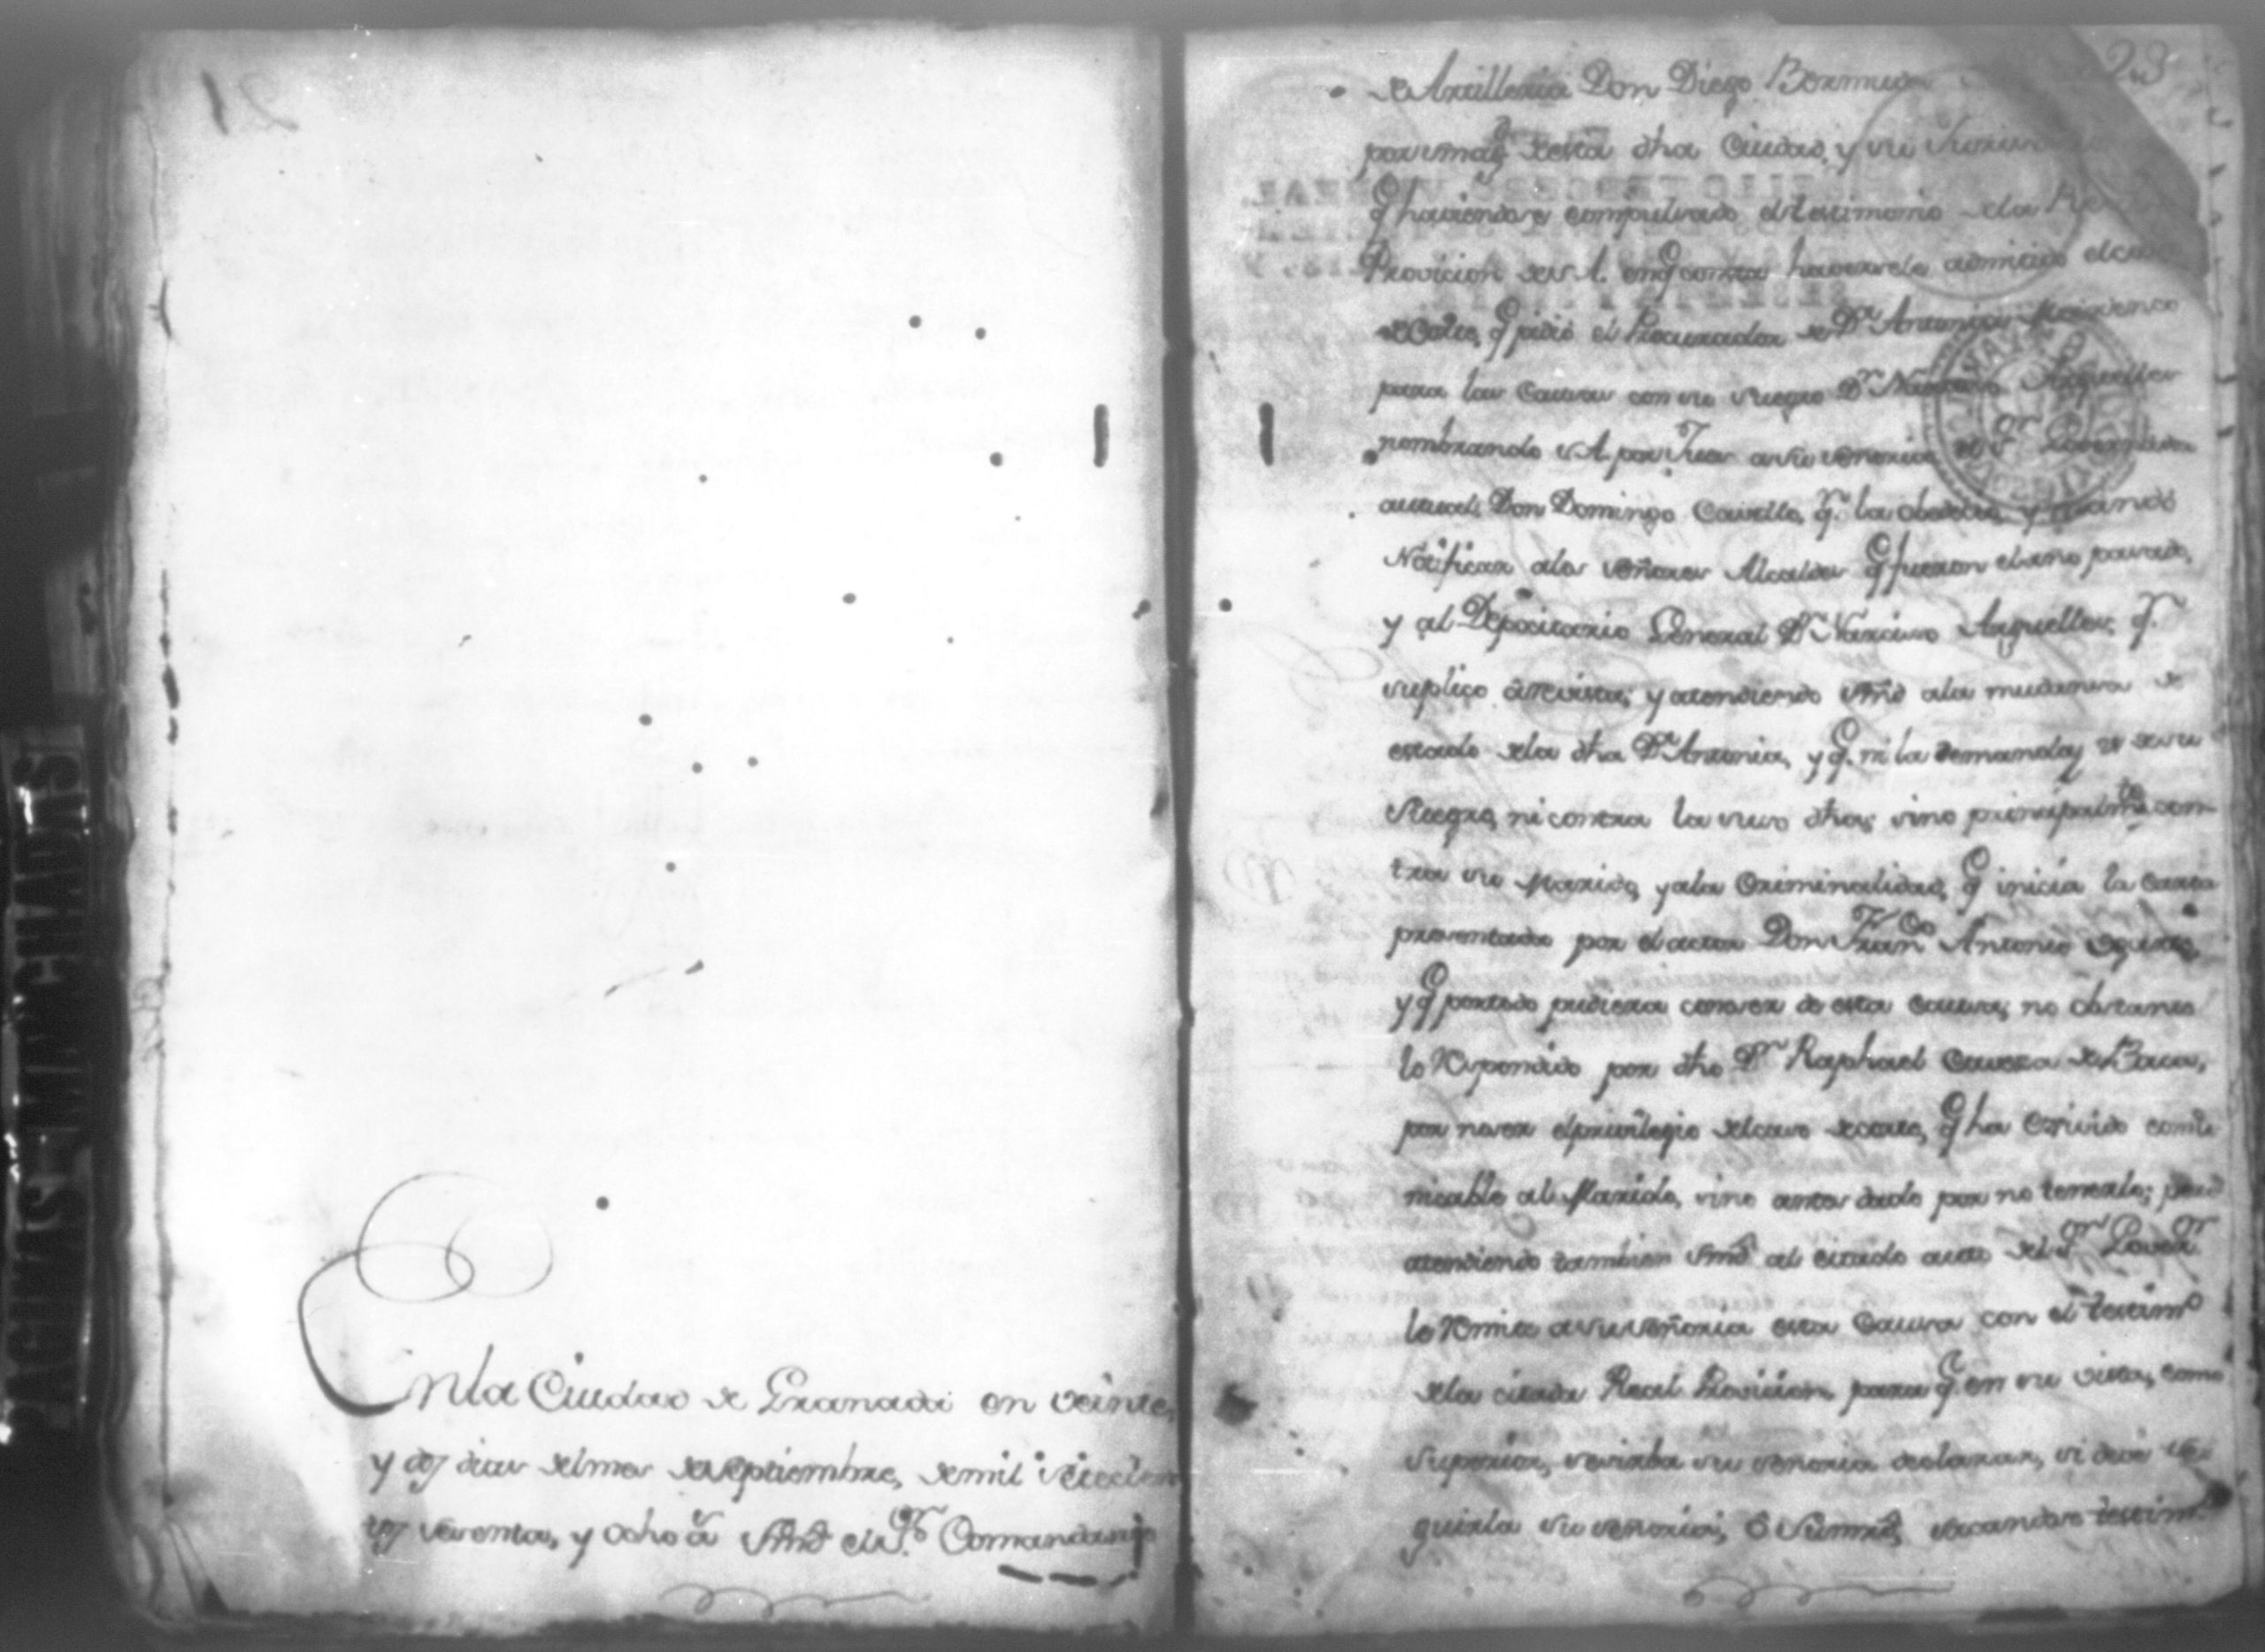 En la Ciudad de Granada en veinte,
y dos dias del mes de septiembre, de mil setecien
tos sesenta, y ocho a.s Smd el S.or Comandante
23
de Artilleria Don Diego Bermudes
por smag.d de esta dha Ciudad, y su
q haviendose compulsado el testimonio de la
Provicion de s A. en q consta haversele admitido el
de Corte, q pidió el Procurador de D.a Antonia
para las Causas con su suegro D.n Narciso Arguelles
nombrando s A. por Jues a su señoria el S.or Governador
actual Don Domingo Cavello, q.n la obedeció, y mandó
Notificar a los señores Alcaldes q fueron el año pasado,
y al Depocitario General D.n Narciso Arguelles, q.n
suplico a revista; y atendiendo Smd a la mudansa de
estado de la dha D.a Antonia, y q. ni la demanda es de su
suegro, ni contra la suso dha, sino principalm.te con-
tra su Marido, y a la Criminalidad, q inicia la carta
presentada por el actor Don Fran.co Antonio
y q por todo pudiera conoser de esta causa, no obstante
lo Respondido por dho D.n Raphael Caveza de Baca,
por no ser el privilegio del caso de corte, q ha
nicable al Marido, sino antes dado por no tenerlo; pero
atendiendo tambien Smd al citado auto del S.or Gover.or
le Remite a su señoria esta Causa con el testim.o
de la citada Real Provicion, para q. en su vista, como
Superior, se sirba su señoria declarar, si deve se-
guirla su señoria, ó Su md, sacandose testim.o